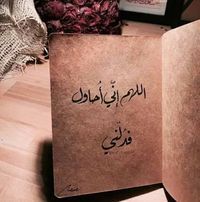 اللهم إنّي أُحاول
فدلّني